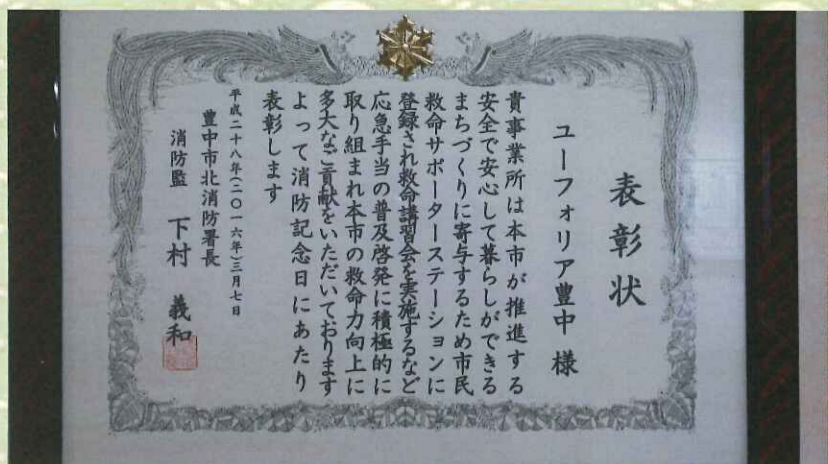 表彰状
ユーフォリア豊中 様
貴事業所は本市が推進する
安全で安心して暮らしができる
まちづくりに寄与するため市民
救命サポーターステーションに
登録され救命講習会を実施するなど
応急手当の普及啓発に積極的に
取り組まれ本市の救命力向上に
多大なご貢献をいただいております
よって消防記念日にあたり
表彰します
平成二十八年(二〇一六年)三月七日
豊中市北消防署長
消防監 下村 義和